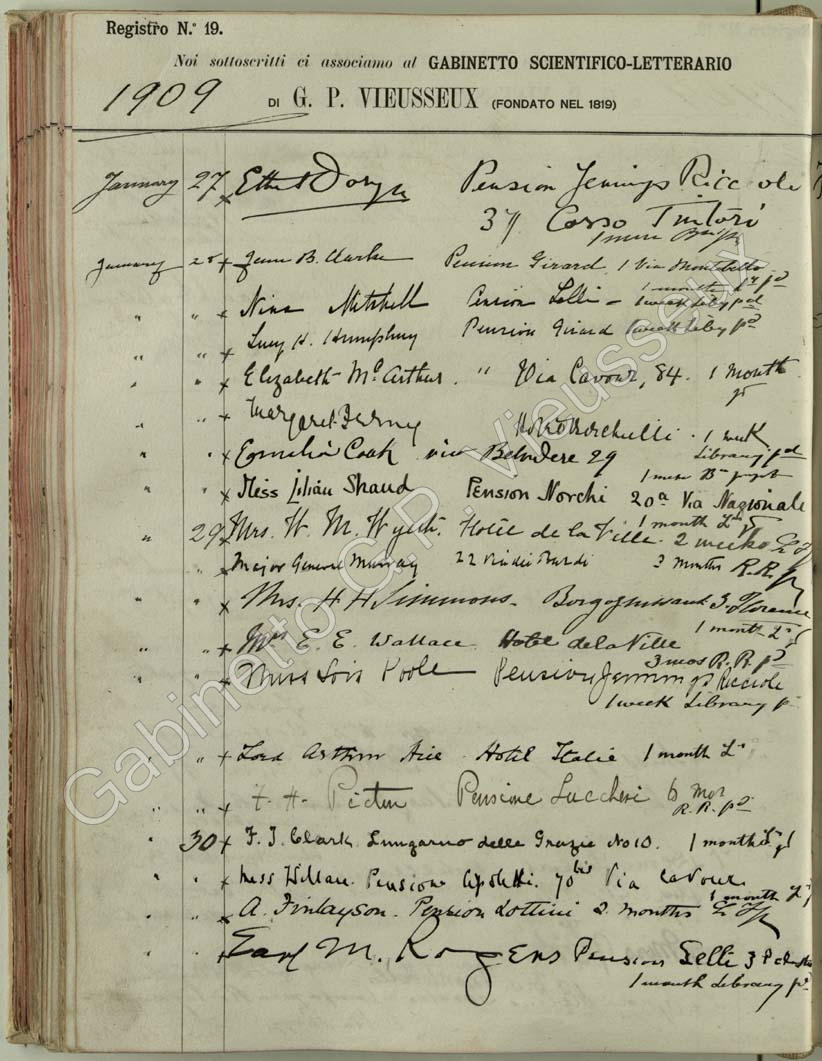 Registro N.° 19.
Noi sottoscritti ci associamo al GABINETTO SCIENTIFICO-LETTERARIO
1909
DI G. P. VIEUSSEUX (FONDATO NEL 1819)
January 27 x Pension Jennings Riccioli
37 Corso Tintori
January 28 x B. Clarke Pension Girard 1 Via Montebello
1 month
" " x Nina Mitchell Pension Lelli - 1 week Liby pd
" " x Lucy H. Humphrey Pension Girard 1 week Liby pd
" " x Elizabeth McArthur. " Via Cavour, 84. 1 Month
" " x Margaret 1 week
Library pd
" " x Cook via Belvedere 29
" " x Miss Lilian Shand Pension Norchi 20a Via Nazionale
1 month
" 29 x Mrs. W. M. Hotel de la Ville. 2 weeks
" x Major General Murray 22 Via dei Bardi 3 months R.R.
" " x Mrs. H H Simmons. 3. Florence
1 month
" " x Mrs E. E. Wallace Hotel de la Ville
3 mos R. R. pd
" " x Miss Lois Poole Pension Jennings Riccioli
1 week Library
" " x Lord Arthur Hotel Italie 1 month
" " x Pensione Luccheri 6 mos
R. R. pd
" 30 x F. J. Clark Lungarno delle Grazie No 10. 1 month
" " x Miss Pensione 70 bis Via Cavour
1 month
" " x A. Finlayson. Pension Lottini 2 months
" " x Earl M. Rogers Pension Lelli 3 P
1 month Library pd
Gabinetto G.P. Vieusseux